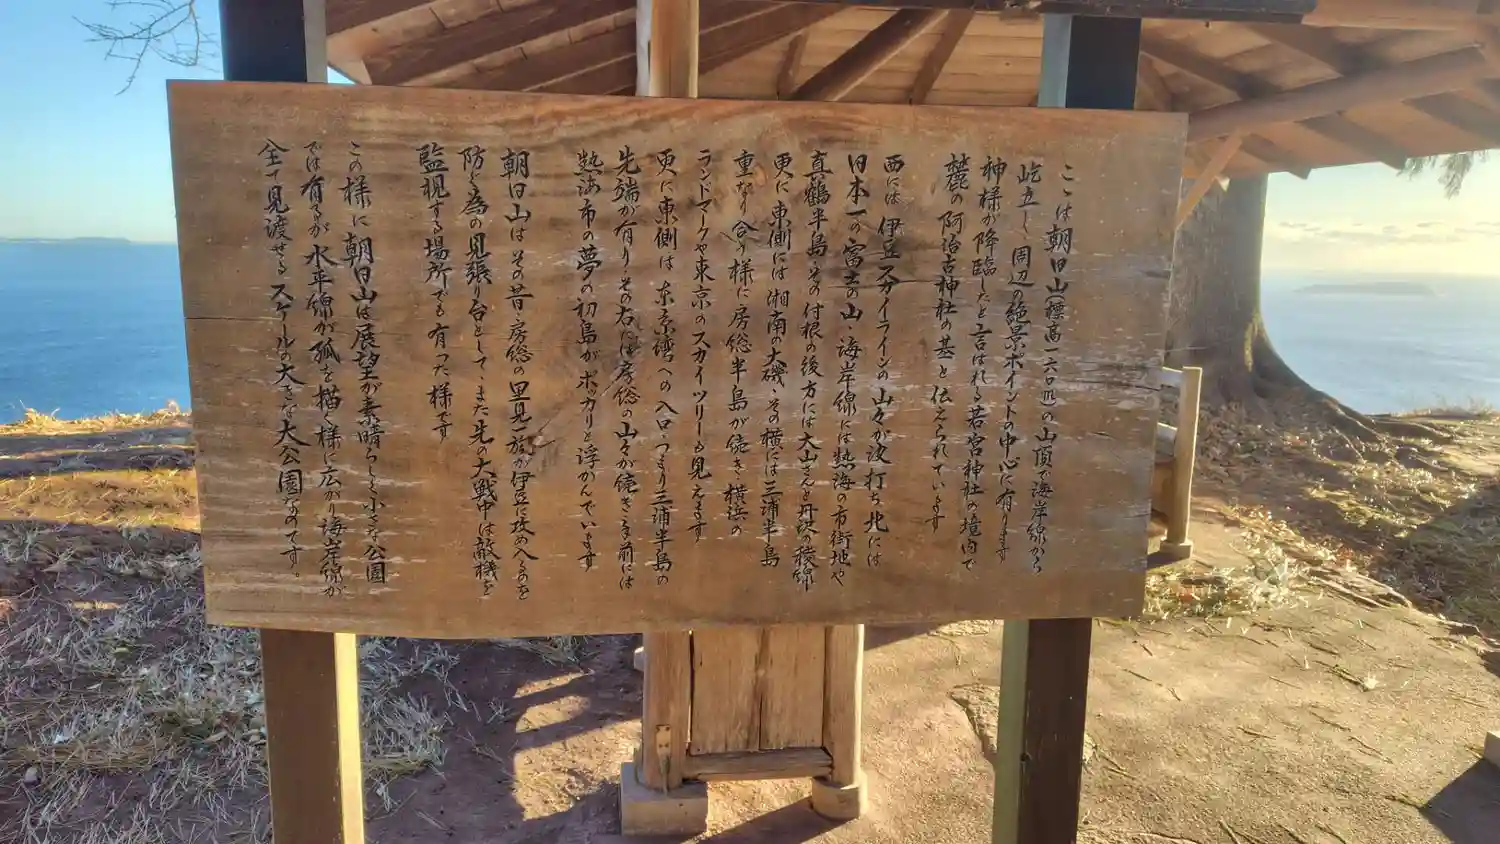 こゝは朝日山(標高一六〇m)の山頂で海岸線から
屹立し、周辺の絶景ポイントの中心に有ります
神様が降臨したと言はれる若宮神社の境内で
麓の阿治古神社の基と伝えられています
西には伊豆スカイラインの山々が波打ち北には
日本一の富士の山、海岸線には熱海の市街地や
真鶴半島、その付根の後方には大山さんと丹沢の稜線
更に東側には湘南の大磯、その横には三浦半島
重なり合う様に房総半島が続き、横浜の
ランドマークや東京のスカイツリーも見えます
更に東側は東京湾への入口、つまり三浦半島の
先端が有り、その右には房総の山々が続きま前には
熱海市の夢の初島がポッカリと浮かんでいます
朝日山はその昔、房総の里見一族が伊豆に攻め入るのを
防ぐ為の見張り台として、また先の大戦中は敵機を
監視する場所でも有った様です
この様に朝日山は展望が素晴らしく小さな公園
では有るが水平線が弧を描く様に広がり海岸線が
全て見渡せるスケールの大きな大公園なのです。